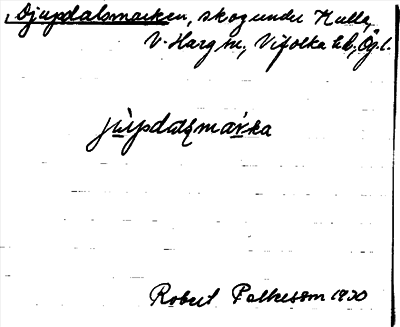 Djupdalsmarken, skog under Kulla,
V. Hargsn, Vifolka hd, Ög. l.
jùpdaʂmárka
Robert Palkeson 1930